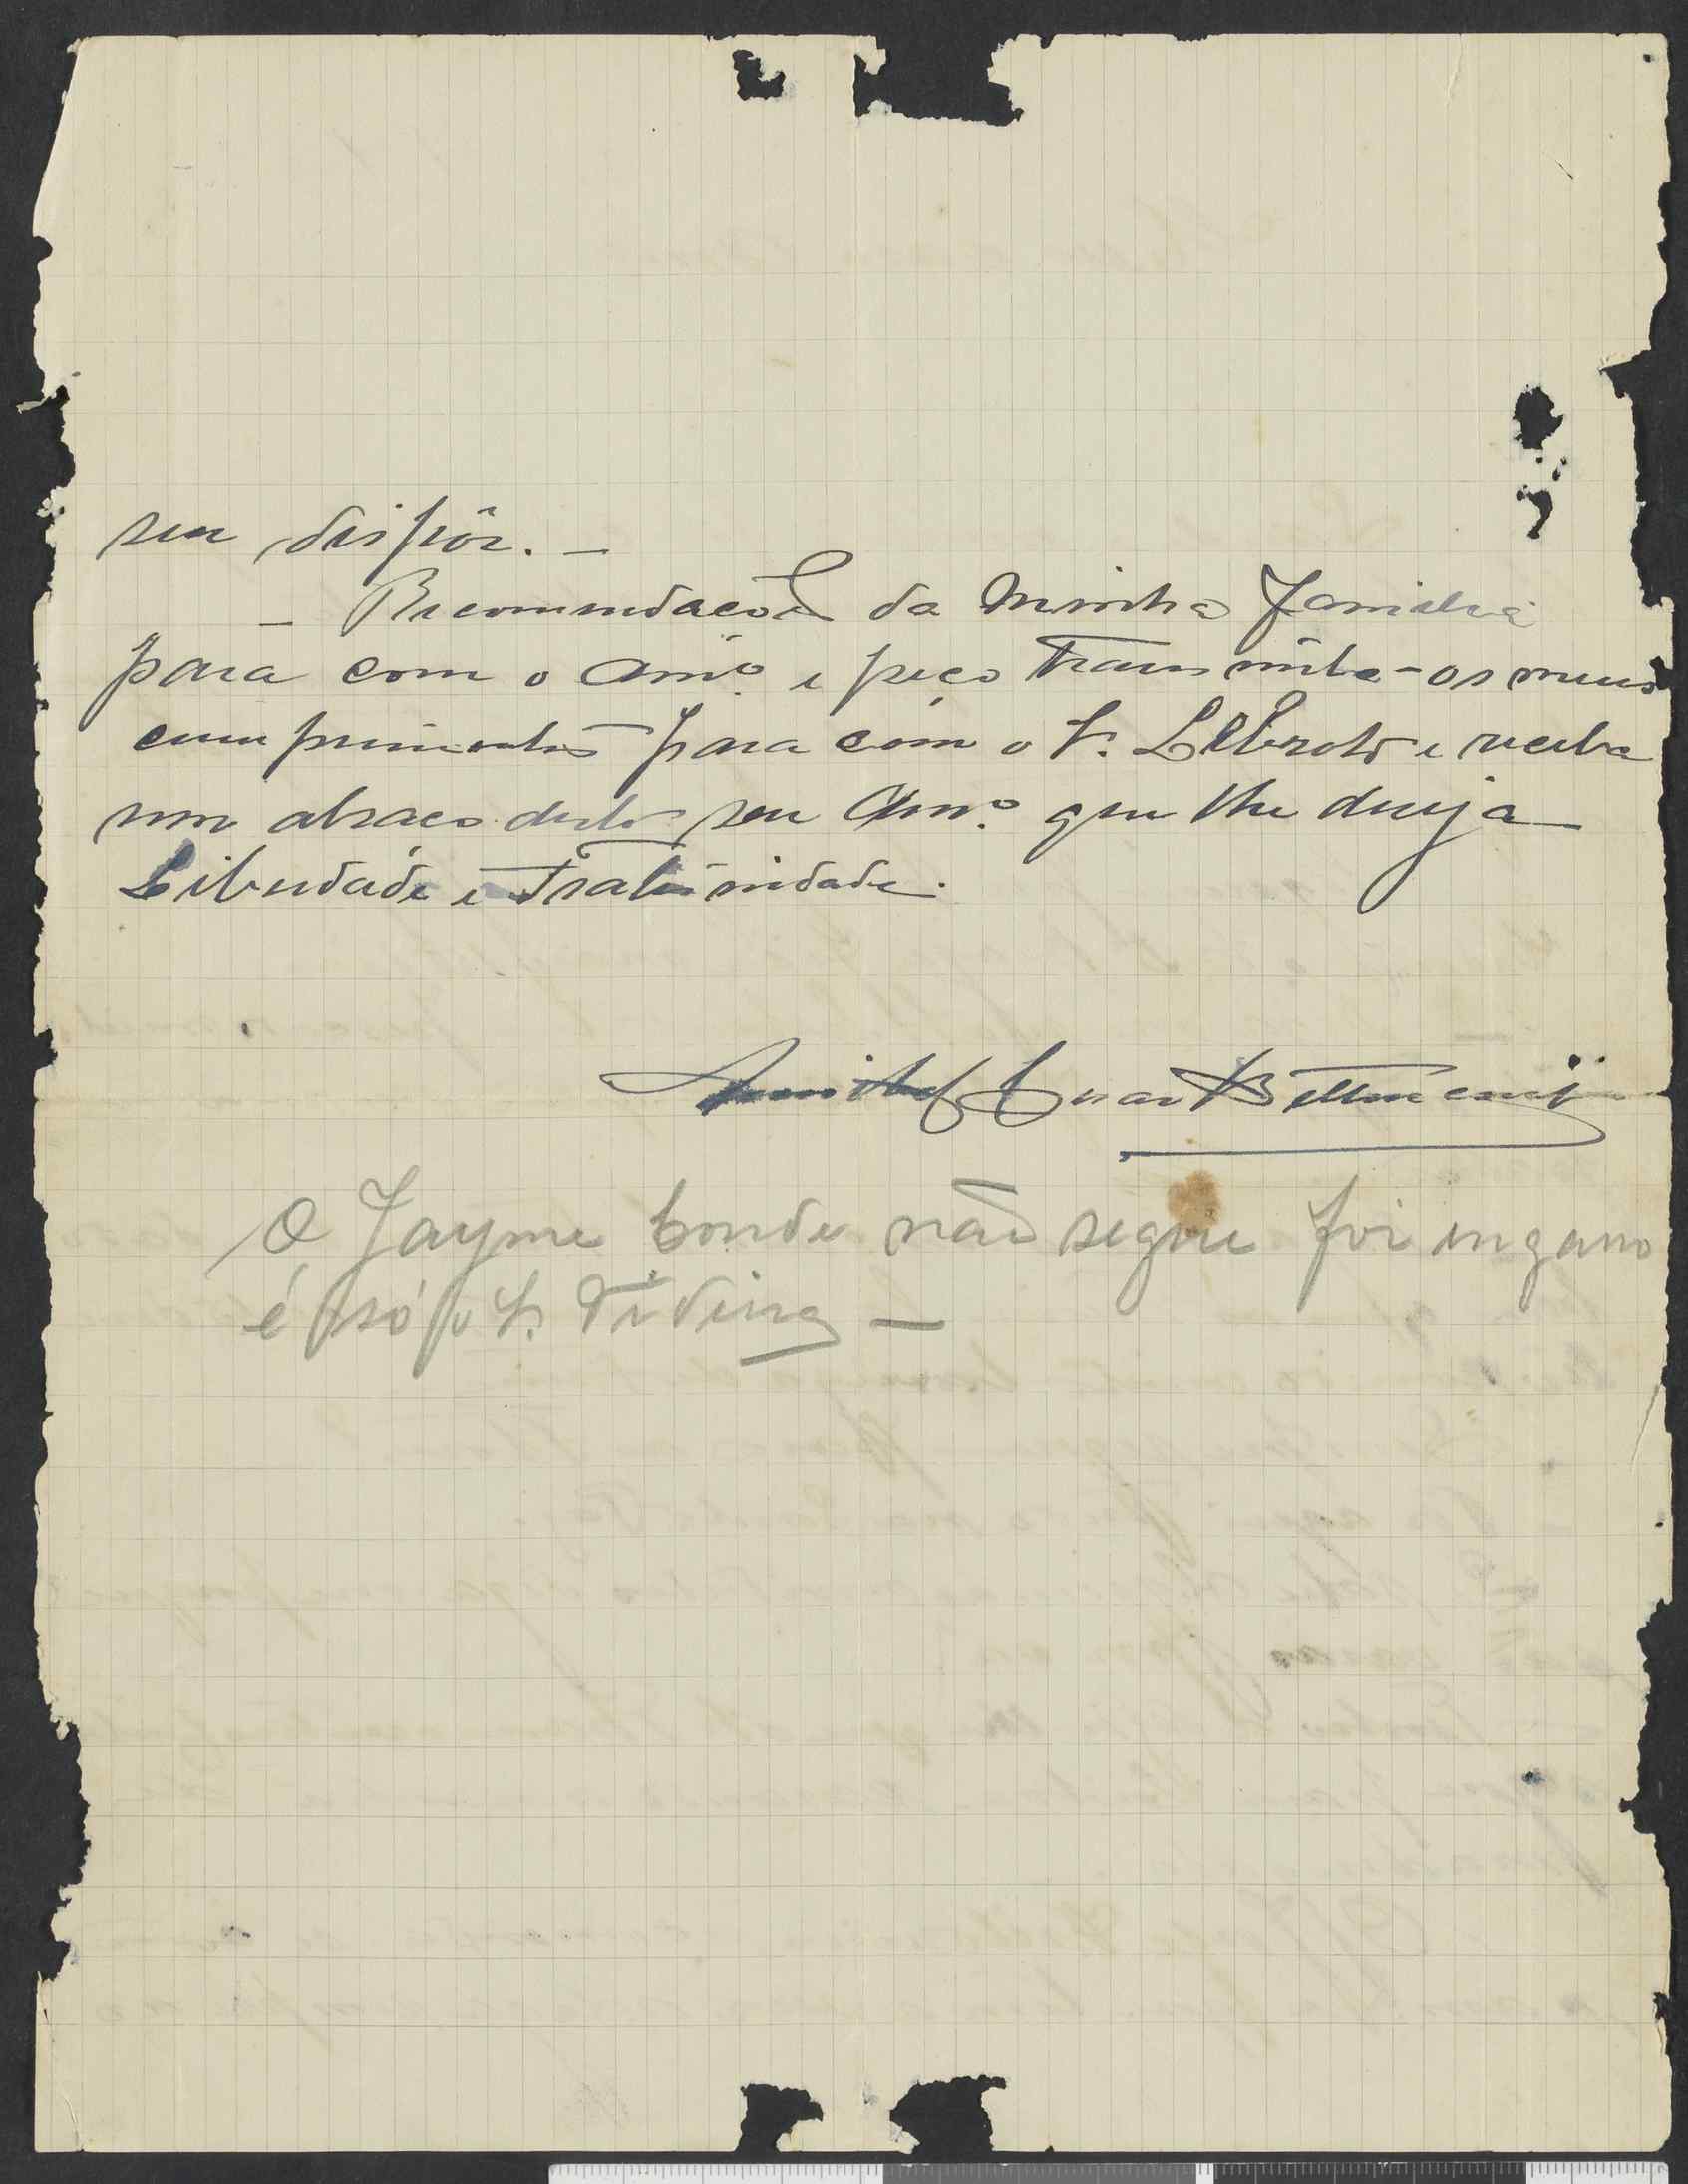 seu dispôr. –
– Recommdacoes da Minha Familia
para com o Amº. e peço transmitta-os meus
cumprimentos para com o Sr. e receba
um abraço deste seu Amº. que lhe deseja
Liberdade e Fraternidade.
O Jayme Conde não segue foi engano
é só o Sr.